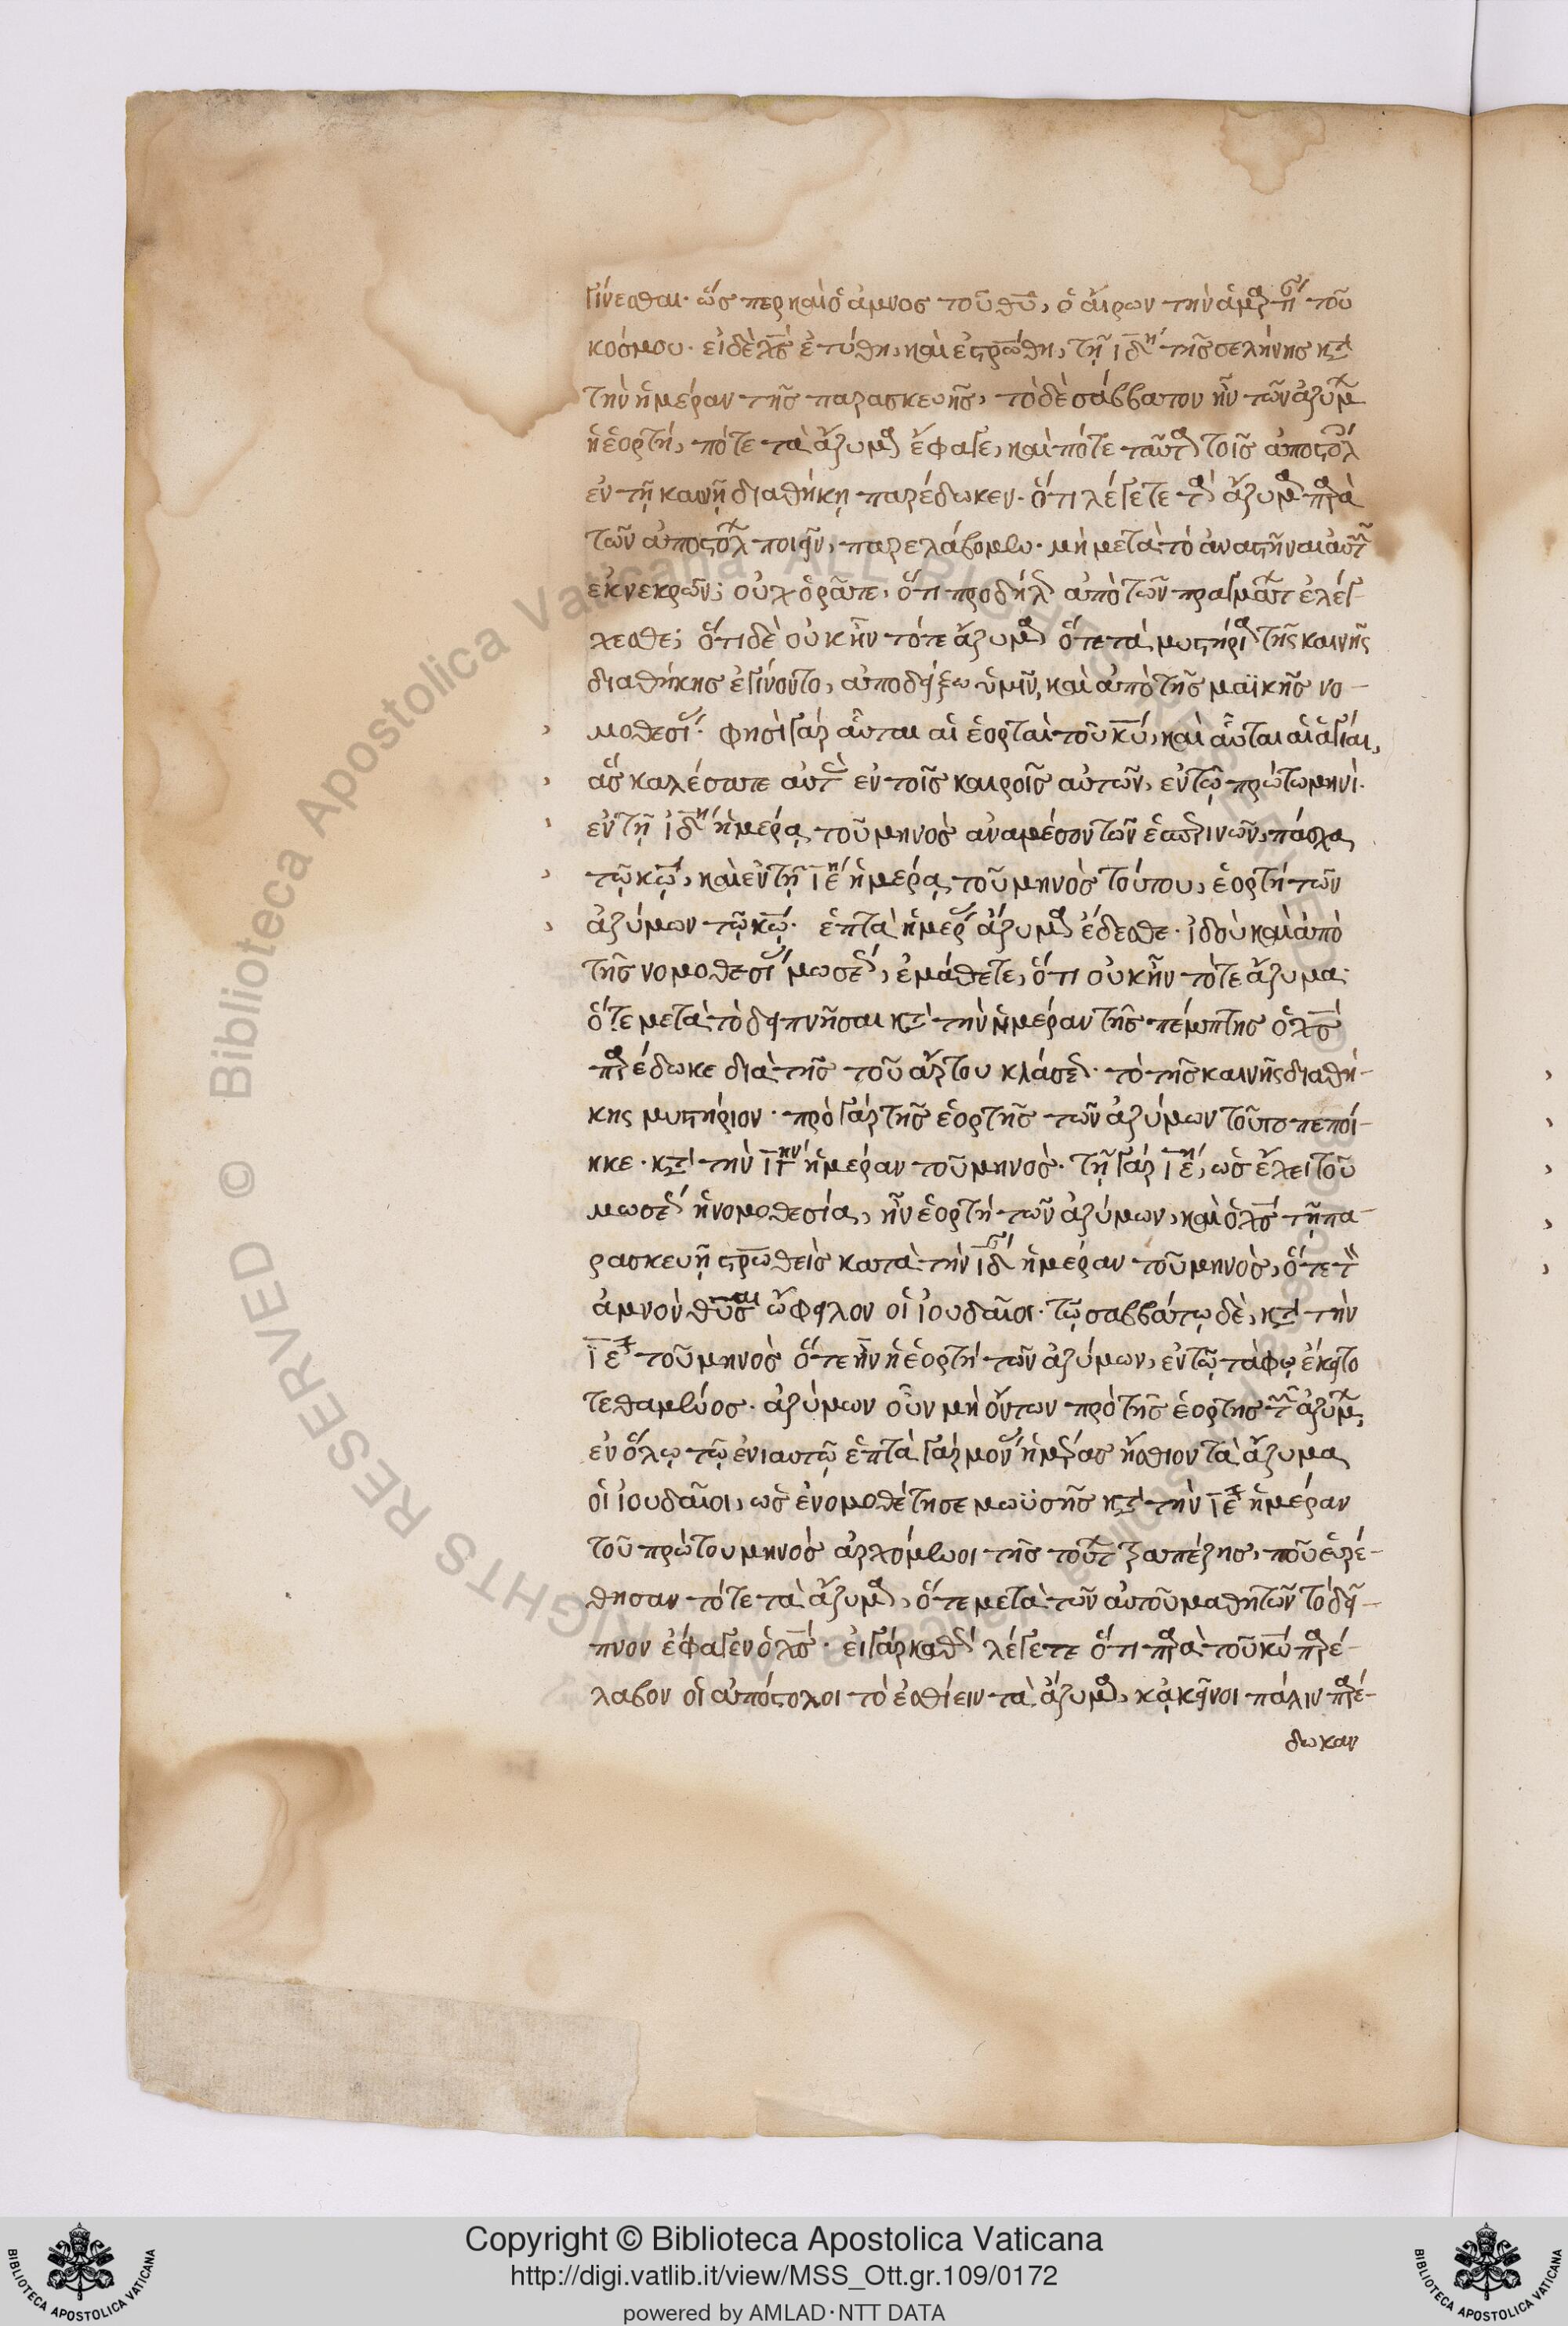 γίνεσθαι· ὥσπερ καὶ ὁ ἀμνὸς τοῦ θῦ, ὁ αἴρων τὴν ἁμαρτί τοῦ
κόσμου· εἰ δὲ χς ἐτύθη, καὶ ἐστρώθη, τῆ ιδη τῆς σελήνης κτ
τὴν ἡμέραν τῆς παρασκευῆς, τὸ δὲ σάββατον ἦν τῶν ἀζύμ
ἡ ἑορτή, πότε τὰ ἄζυμα ἔφαγε, καὶ πότε ταῦτα τοῖς ἀποστόλ
ἐν τῆ καινῆ διαθήκη παρέδωκεν· ὅτι λέγετε τὰ ἄζυμα παρὰ
τῶν ἀποστόλ ποιεῖν, παρελάβομεν· μὴ μετὰ τὸ ἀναστῆναι αὐτ
ἐκ νεκρῶν; οὐχ ὁρᾶτε, ὅτι προδήλ ἀπὸ τῶν πραγμάτ ἐλέγ-
χεσθε; ὅτι δὲ οὐκ ἦν τότε ἄζυμα ὅτε τὰ μυστήρια τῆς καινῆς
διαθήκης ἐγίνοντο, ἀποδείξω ὑμῖν, καὶ ἀπὸ τῆς μαϊκῆς νο-
μοθεσί· φησὶ γὰρ αὗται αἱ ἑορταὶ τοῦ κυ, καὶ αὗται αἱ ἁγίαι,
ἃς καλέσατε αὐτὰς ἐν τοῖς καιροῖς αὐτῶν, ἐν τῷ πρώτω μηνὶ·
ἐν τῆ ιδη ἡμέρᾳ τοῦ μηνὸς ἀναμέσον τῶν ἑσπερινῶν, πάσχα
τῷ κῷ, καὶ ἐν τῇ ιεη ἡμέρᾳ τοῦ μηνὸς τούτου, ἑορτὴ τῶν
ἀζύμων τῷ κῷ· ἑπτὰ ἡμέρ ἄζυμα ἔδεσθε· ἰδοὺ καὶ ἀπὸ
τῆς νομοθεσί μωσέ, ἐμάθετε, ὅτι οὐκ ἦν τότε ἄζυμα·
ὅτε μετὰ τὸ δειπνῆσαι κτ τὴν ἡμέραν τῆς πέμπτης ὁ χς
παρέδωκε διὰ τῆς τοῦ ἄρτου κλάσε· τὸ τῆς καινῆς διαθή-
κης μυστήριον· πρὸ γὰρ τῆς ἑορτῆς τῶν ἀζύμων τοῦτο πεποί-
ηκε· κτ τὴν ιγην ἡμέραν τοῦ μηνὸς· τῇ γὰρ ιεη, ὡς ἔχει τοῦ
μωσέ ἡ νομοθεσία, ἦν ἑορτὴ τῶν ἀζύμων, καὶ ὁ χς τῇ πα-
ρασκευῇ στρωθεὶς κατὰ τὴν ιδ ἡμέραν τοῦ μηνὸς, ὅτε τ
ἀμνὸν θῦσαι ὤφειλον οἱ ἰουδαῖοι· τῷ σαββάτῳ δὲ, κτ τὴν
ιε τοῦ μηνὸς ὅτε ἦν ἡ ἑορτὴ τῶν ἀζύμων, ἐν τῷ τάφῳ ἔκειτο
τεθαμένος· ἀζύμων οὖν μὴ ὄντων πρὸ τῆς ἑορτης τ ἀζύμ,
ἐν ὅλῳ τῷ ἐνιαυτῷ ἑπτὰ γὰρ μόν ἡμέρας ἤσθιον τὰ ἄζυμα
οἱ ἰουδαῖοι, ὡς ἐνομοθέτησε μωϋσῆς κτ τὴν ιε ἡμέραν
τοῦ πρώτου μηνὸς ἀρχόμενοι τῆς τούτ τραπέζης, ποῦ εὑρέ-
θησαν τότε τὰ ἄζυμα, ὅτε μετὰ τῶν αὐτοῦ μαθητῶν τὸ δεῖ-
πνον ἔφαγεν ὁ χς· εἰ γὰρ καθ λέγετε ὅτι παρὰ τοῦ κυ παρέ-
λαβον οἱ ἀπόστολοι τὸ ἐσθίειν τὰ ἄζυμα, κἀκεῖνοι πάλιν παρέ-
δωκαν
Copyright © Biblioteca Apostolica Vaticana
http://digi.vatlib.it/view/MSS_Ott.gr.109/0172
powered by AMLAD·NTT DATA